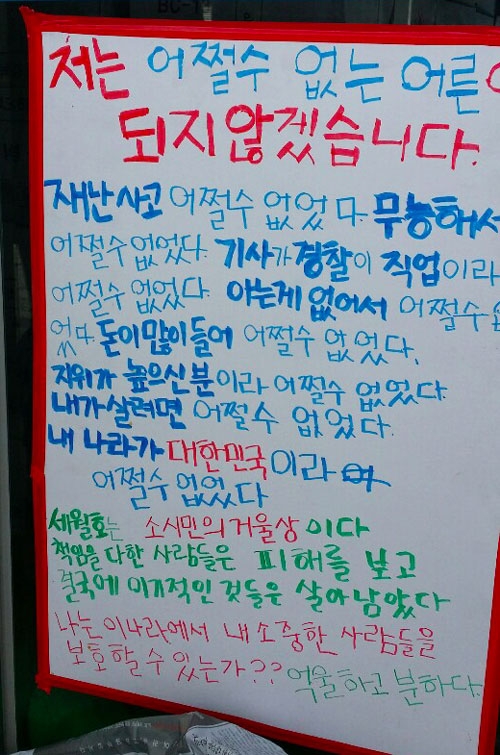 저는 어쩔수 없는 어른
되지않겠습니다.
재난사고 어쩔수 없었다. 무능해서
어쩔수없었다. 기사가 경찰이 직업이라
어쩔수 없었다. 아는게 없어서 어쩔수
었다. 돈이많이들어 어쩔수 없었다.
지위가 높으신분이라 어쩔수 없었다.
내가살려면 어쩔수 없었다.
내 나라가 대한민국이라
어쩔수 없었다
세월호는 소시민의거울상이다
책임을다한 사람들은 피해를 보고
결국에 이기적인 것들은 살아남았다
나는 이나라에서 내 소중한 사람들을
보호할수 있는가?? 억울하고 분하다.